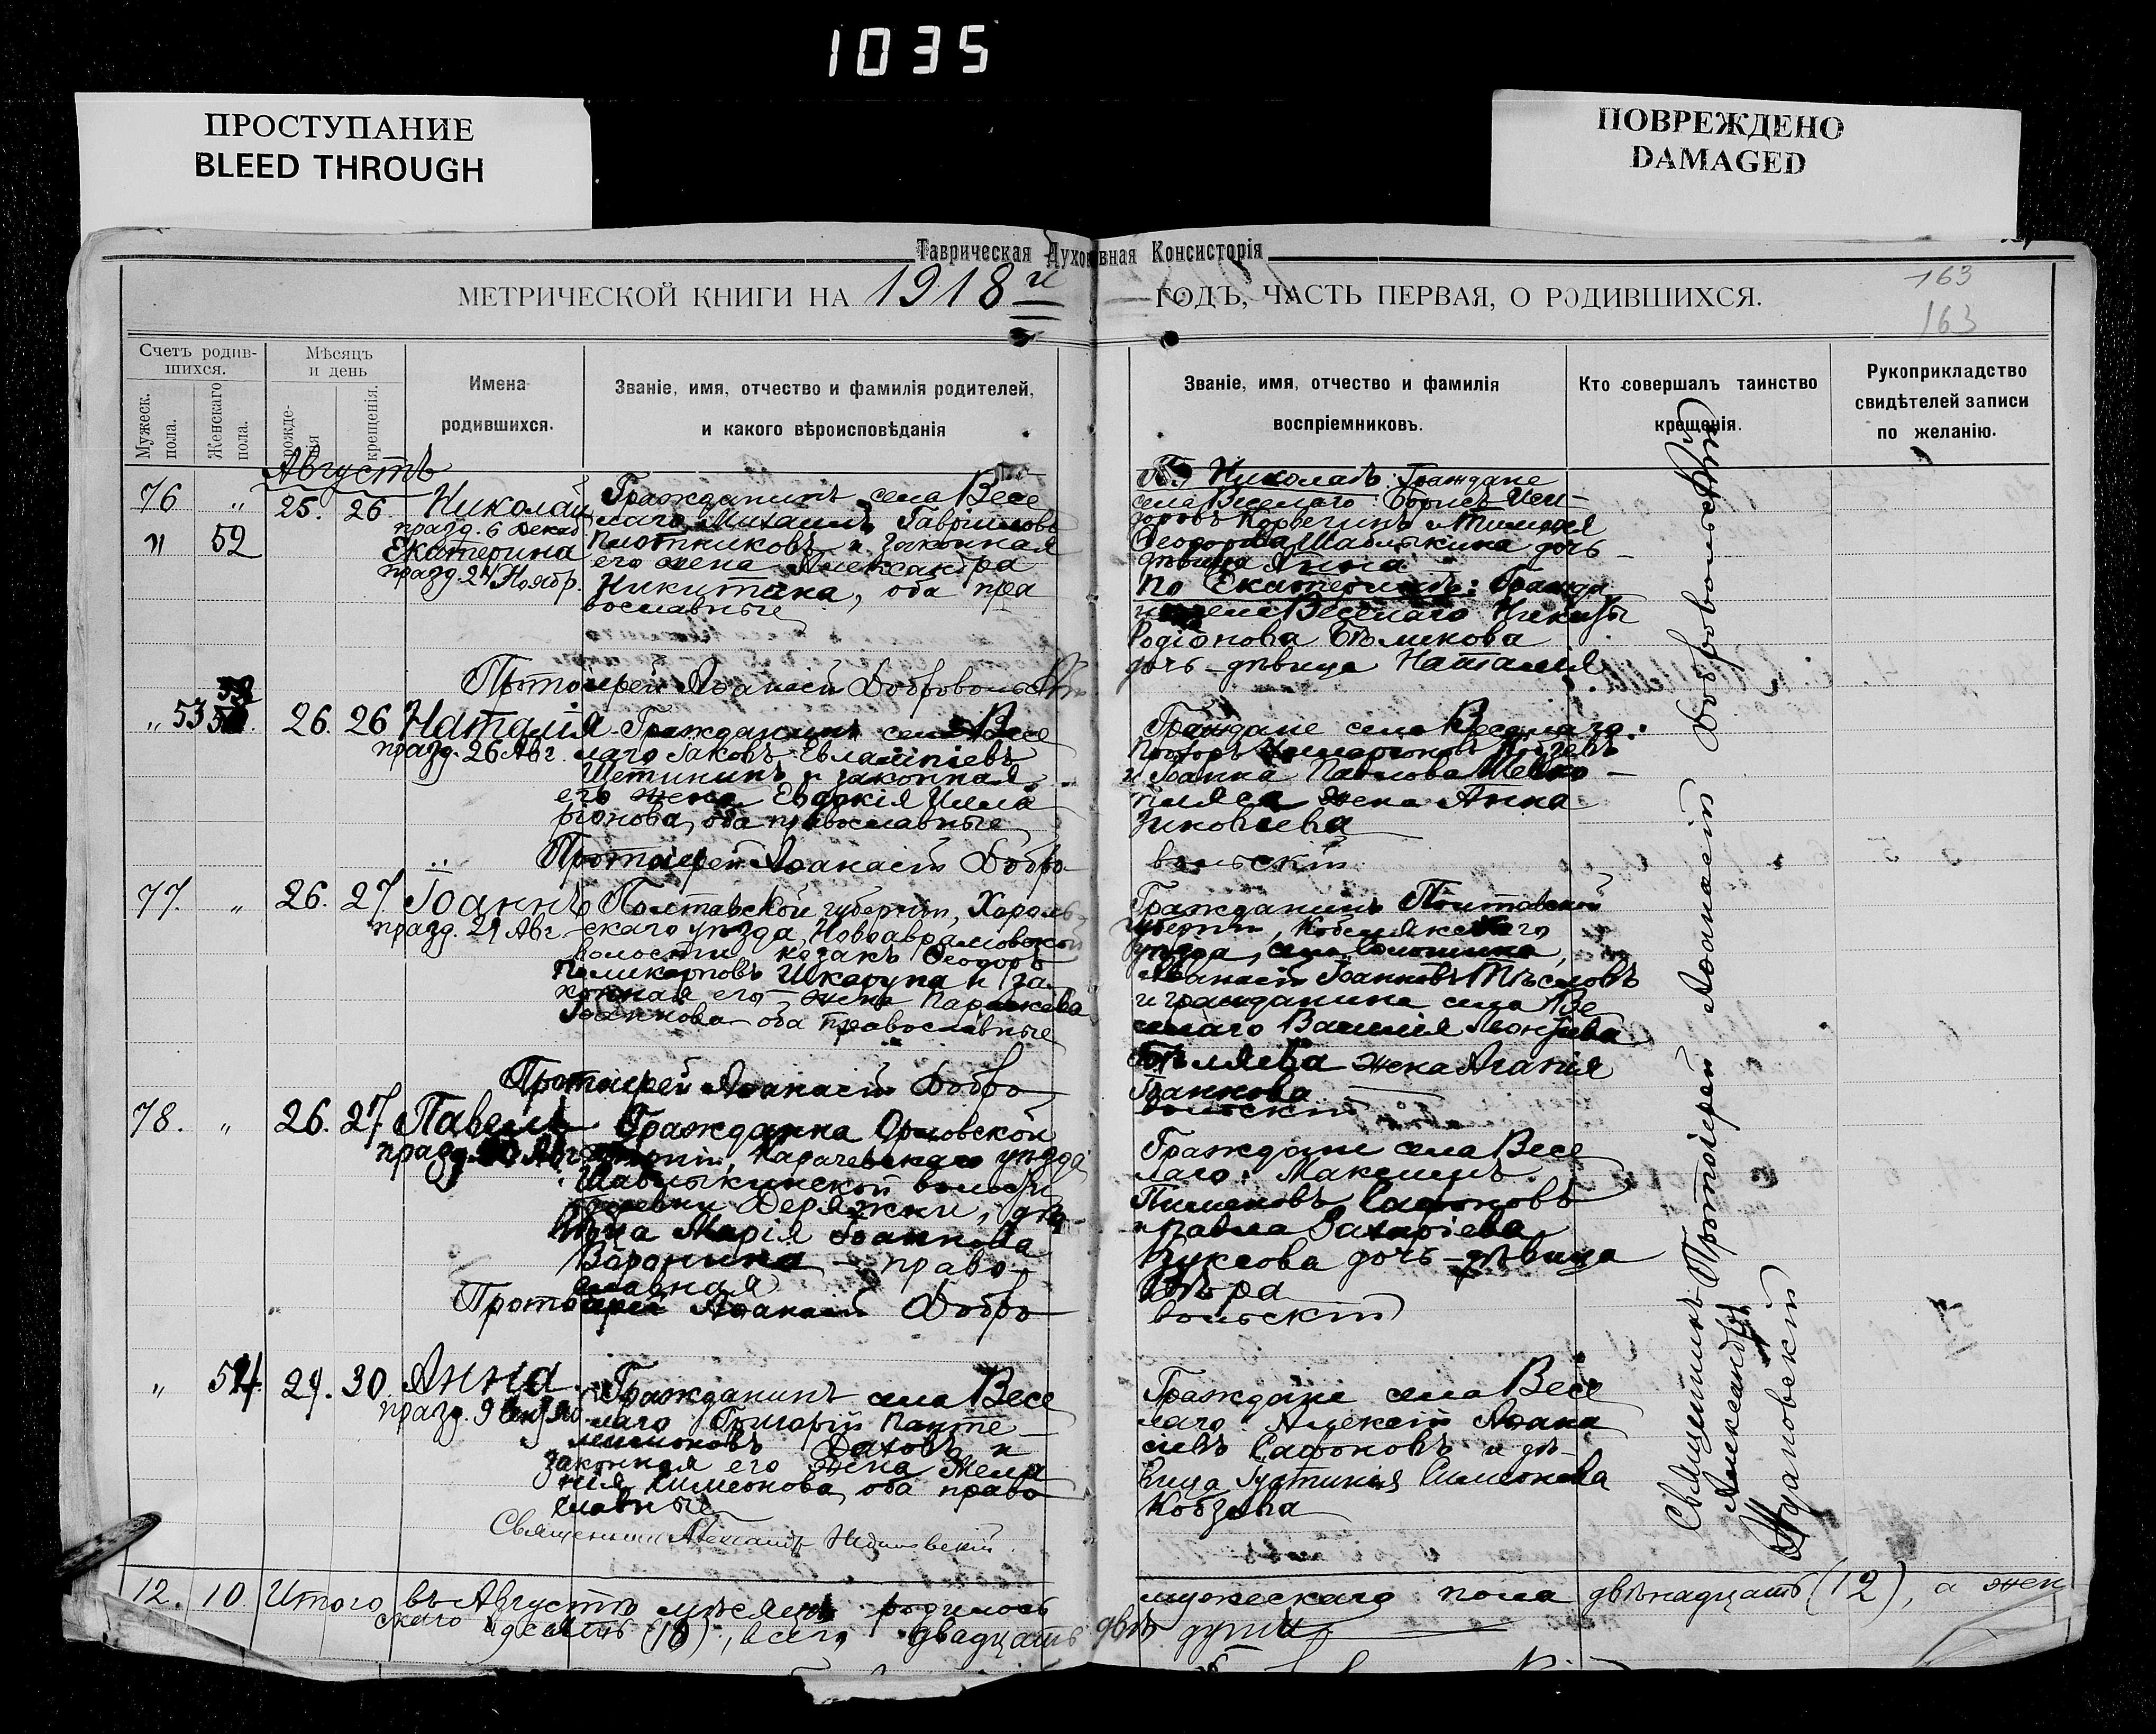 1035
ПРОСТУПАНИЕ
BLEED THROUGH
ПОВРЕЖДЕНО
DAMAGED
Таврическая Духовная Консисторія
МЕТРИЧЕСКОЙ КНИГИ НА 1918 й ГОДЪ, ЧАСТЬ ПЕРВАЯ, О РОДИВШИХСЯ.
163
163
Счетъ родив-
шихся.
Мужеск.
пола.
Женскаго
пола.
Мѣсяцъ
и день
рожде-
нія
крещенія.
Имена
родившихся.
Званіе, имя, отчество и фамилія родителей,
и какого вѣроисповѣданія
Званіе, имя, отчество и фамилія
воспріемниковъ.
Кто совершалъ таинство
крещенія.
Рукоприкладство
свидѣтелей записи
по желанію.
Августъ
76 " 25. 26 Николай
празд. 6 Декаб
" 52 Екатерина
празд. 24 Ноябр.
Гражданинъ села Весе
лаго Михаилъ Гавріиловъ
Плотниковъ и законная
его жена Александра
Никитина, оба пра
вославные
Николаѣ: Граждане
села Веселаго: Борисъ Иси-
доровъ
Ѳеодорова Шаблыкина дочь-
дѣвица Анна
По Екатеринѣ: Гражда
села Веселаго Никиты
Родіонова
дочь-дѣвица Наталия
Протоіерей Аѳанасій Добровольскій
" 53 26. 26 Наталія
празд. 26 Авг.
Гражданинъ села Весе
лаго Іаковъ Евлампіевъ
Щетининъ и законная
его жена Евдокія Илла
ріонова, оба православные
Граждане села Веселаго:
и Іоанна Павлова
жена Анна
Зиновьева
Протоіерей Аѳанасій Добро
вольскій
77. " 26. 27 Іоаннъ
празд. 29 Авг.
Полтавской губерніи, Хороль-
скаго уѣзда, Новоаврамовской
волости козакъ Ѳеодоръ
Поликарповъ Шкарупа и за-
конная его жена Параскева
Іоаннова оба православные
Гражданинъ Полтавской
губерніи, Кобелякскаго
уѣзда, села
Аѳанасій Іоанновъ
и гражданина села Ве
селаго Василія Леонтьева
Бѣляева жена Агапія
Іоаннова
Протоіерей Аѳанасій Добро
вольскій
78. " 26. 27 Павелъ
празд. Авг.
Гражданка Орловской
губерніи, Карачевскаго уѣзда
Шаблыкинской волости
деревни Деряжки, дѣ-
вица Марія Іоаннова
Воронина - право-
славная
Граждане села Весе
лаго: Максимъ
Пименовъ Сафоновъ
и Павла Захаріева
дочь-дѣвица
Вѣра
Протоіерей Аѳанасій Добро
вольскій
" 54. 29. 30. Анна
празд. 9 Сентяб.
Гражданинъ села Весе
лаго Григорій Панте-
леимоновъ и
законная его жена Мела
нія Симеонова, оба право
славные
Граждане села Весе
лаго: Алексій Аѳана
сіевъ Сафоновъ и дѣ-
вица Іустинія Симеонова
Кобзева
Священникъ Александръ Ждановскій
Протоіерей Аѳанасій Добровольскій
Священникъ
Александръ
Ждановскій
12. 10. Итого въ Августѣ мѣсяцѣ родилось мужескаго пола двѣнадцать (12), а жен
скаго десять (10), всего двадцать двѣ души